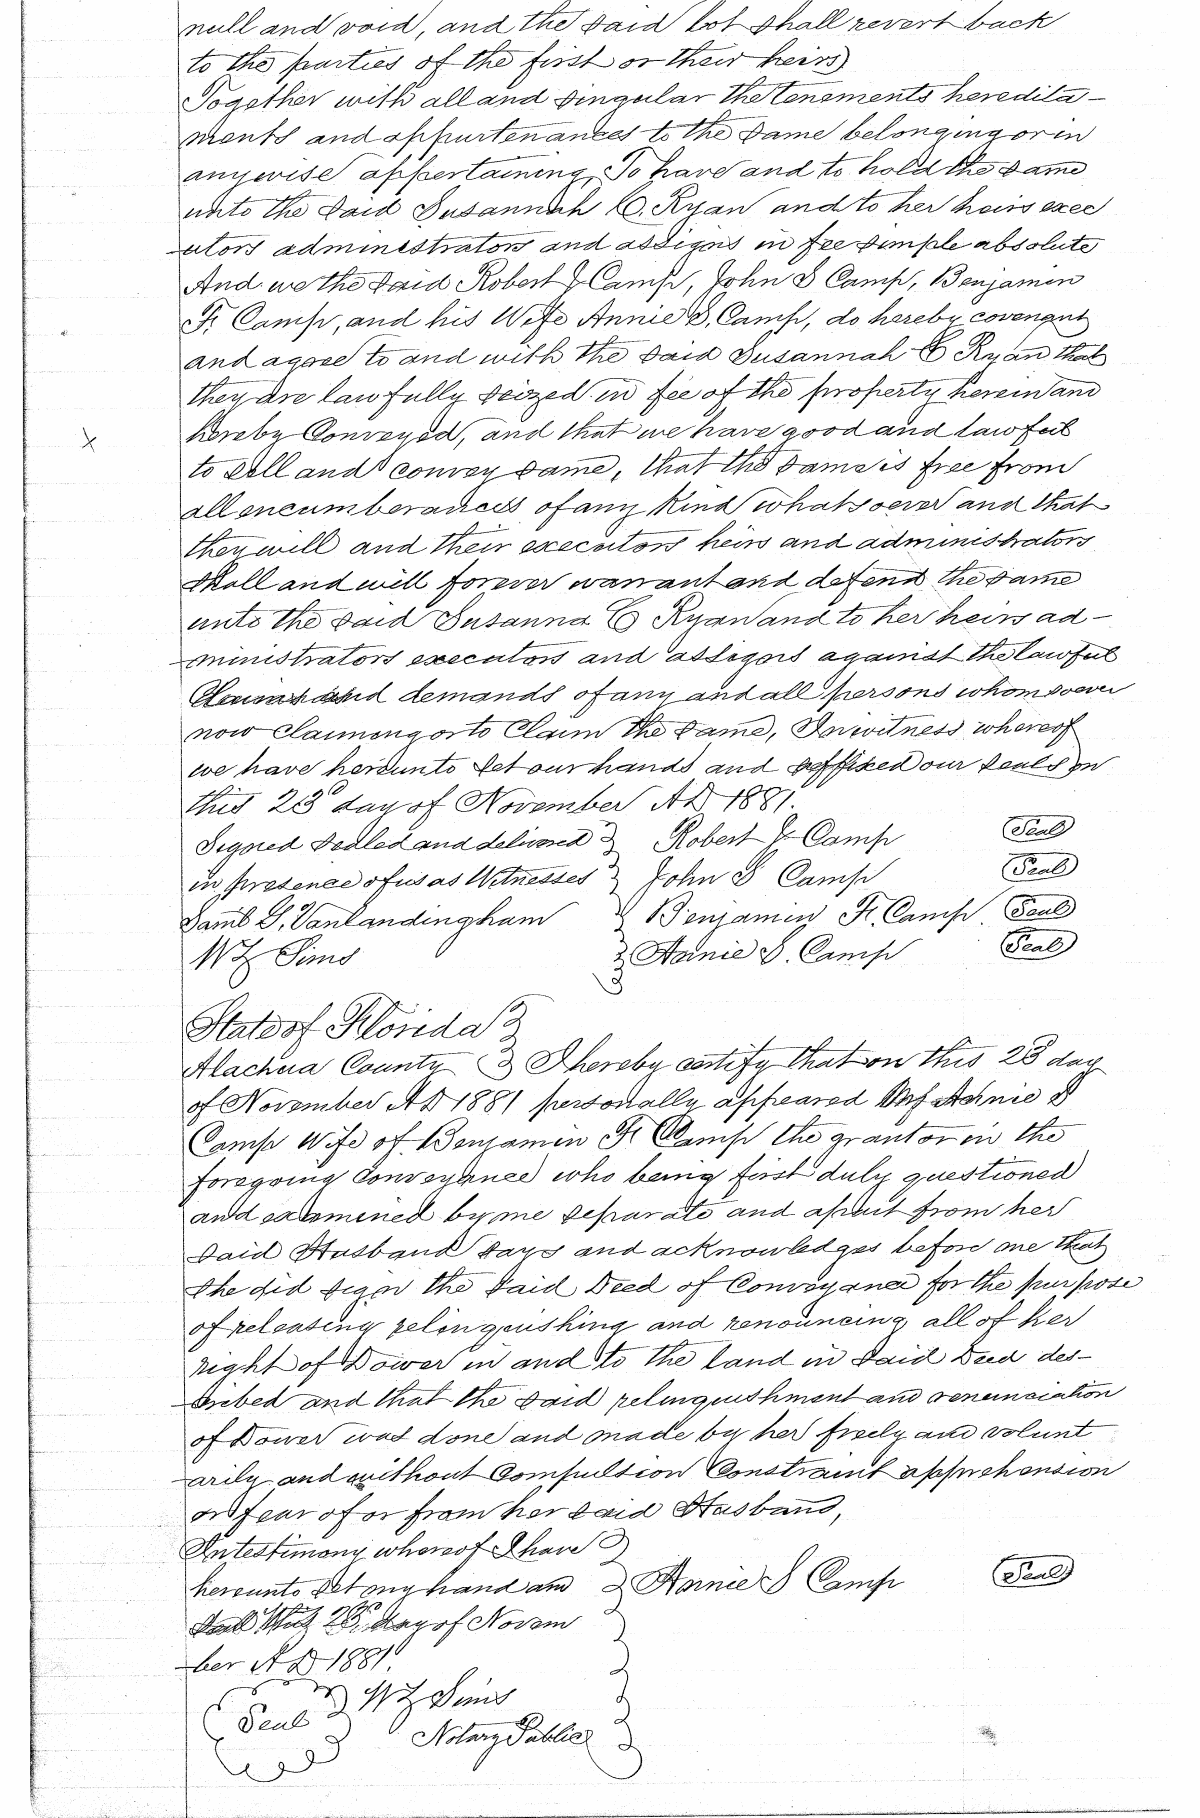 null and void, and the said lot shall revert back
to the parties of the first or their heirs
Together with all and singular the tenements heredita-
ments and appurtenances to the same belonging or in
anywise appertaining, To have and to hold the same
unto the said Susannah C. Ryan and to her heirs exec
utors administrators and assigns in fee simple absolute
And we the said Robert J Camp, John S Camp, Benjamin
F. Camp, and his Wife Annie S. Camp, do hereby covenant
and agree to and with the said Susannah C Ryan that
they are lawfully seized in fee of the property herein and
hereby Conveyed, and that we have good and lawful
to sell and convey same, that the same is free from
all encumberances of any kind whatsoever and that
they will and their executors heirs and administrators
shall and will forever warrant and defend the same
unto the said Susanna C Ryan and to her heirs ad-
ministrators executors and assigns against the lawful
Claims and demands of any and all persons whomsoever
now claiming or to Claim the same, In witness whereof
we have hereunto set our hands and affixed our seals on
this 23d day of November AD 1881.
Signed Sealed and delivered Robert J Camp Seal
in presence of us as Witnesses John S Camp Seal
Saml G. Vanlandingham Benjamin F. Camp. Seal
W Z Sims Annie S. Camp Seal
State of Florida
Alachua County I hereby certify that on this 23 day
of November AD 1881 personally appeared Mrs Annie S
Camp Wife of Benjamin F. Camp the grantor in the
foregoing Conveyance who being first duly questioned
and examined by me separate and apart from her
said Husband says and acknowledges before me that
she did sign the said Deed of Conveyance for the purpose
of releasing relinquishing and renouncing all of her
right of Dower in and to the land in said Deed des-
cribed and that the said relinquishment and renunciation
of Dower was done and made by her freely and volunt
arily and without Compulsion Constraint apprehension
or fear of or from her said Husband,
In testimony whereof I have
hereunto set my hand and Annie S Camp Seal
seal this 23d day of Novem
ber AD 1881.
Seal W Z Sims
Notary Public